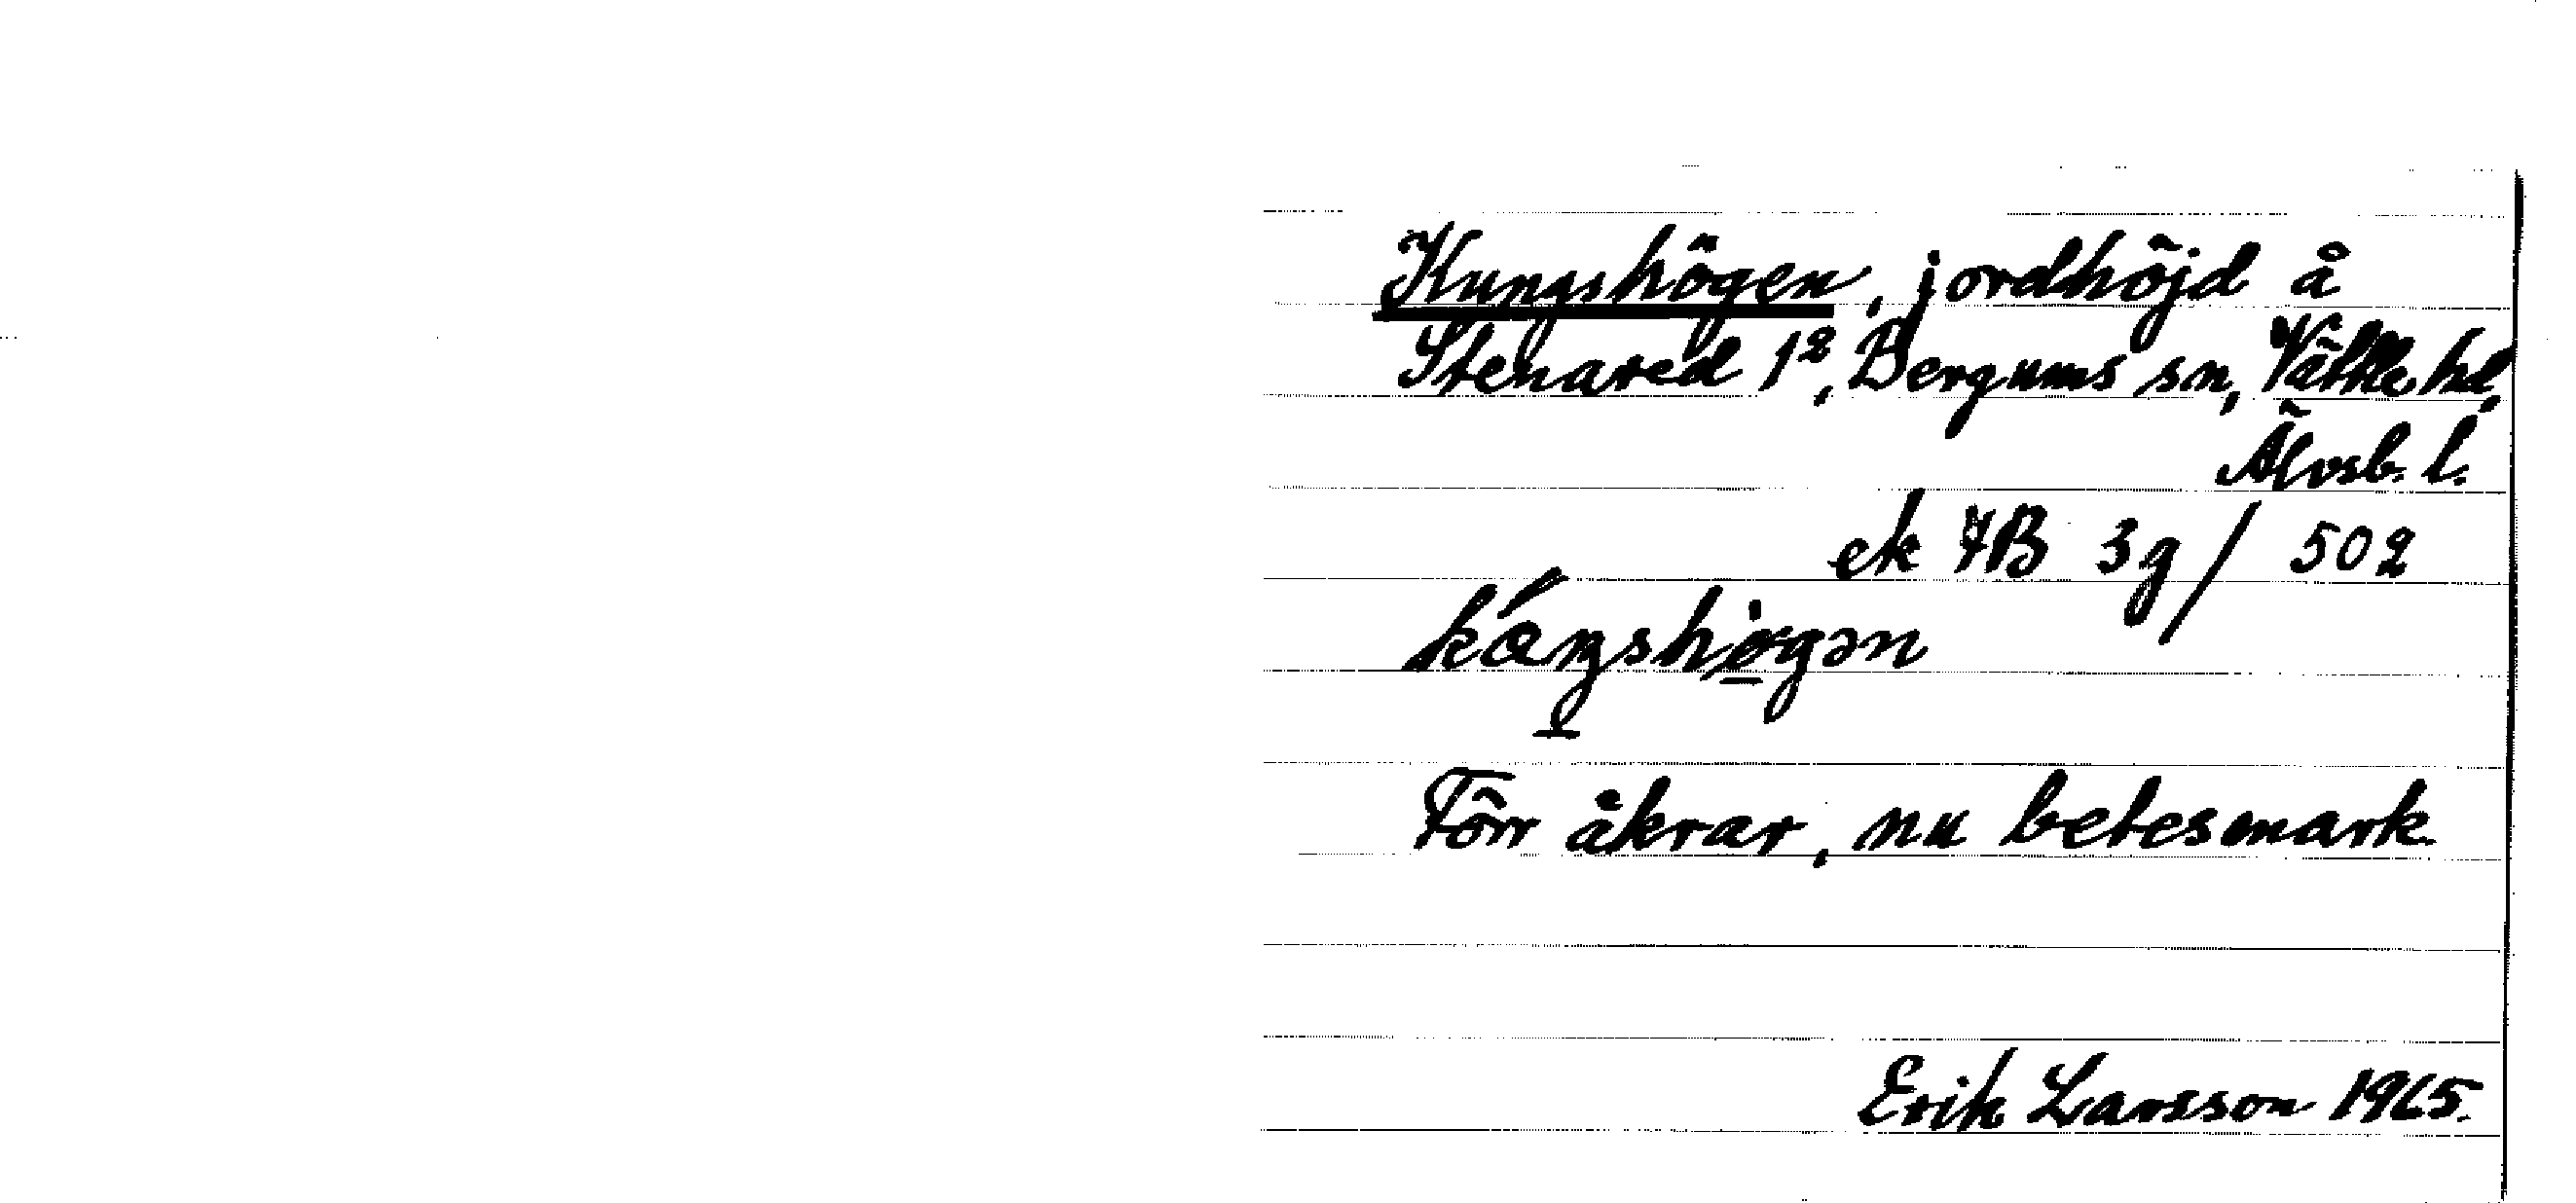 Kungshögen, jordhöjd å
Stenared 1², Bergums sn, Vättle hd,
Älvsb. l.
ek 7B 3g / 502
kóŋshö̀gən
Förr åkrar, nu betesmark.
Erik Larsson 1965.